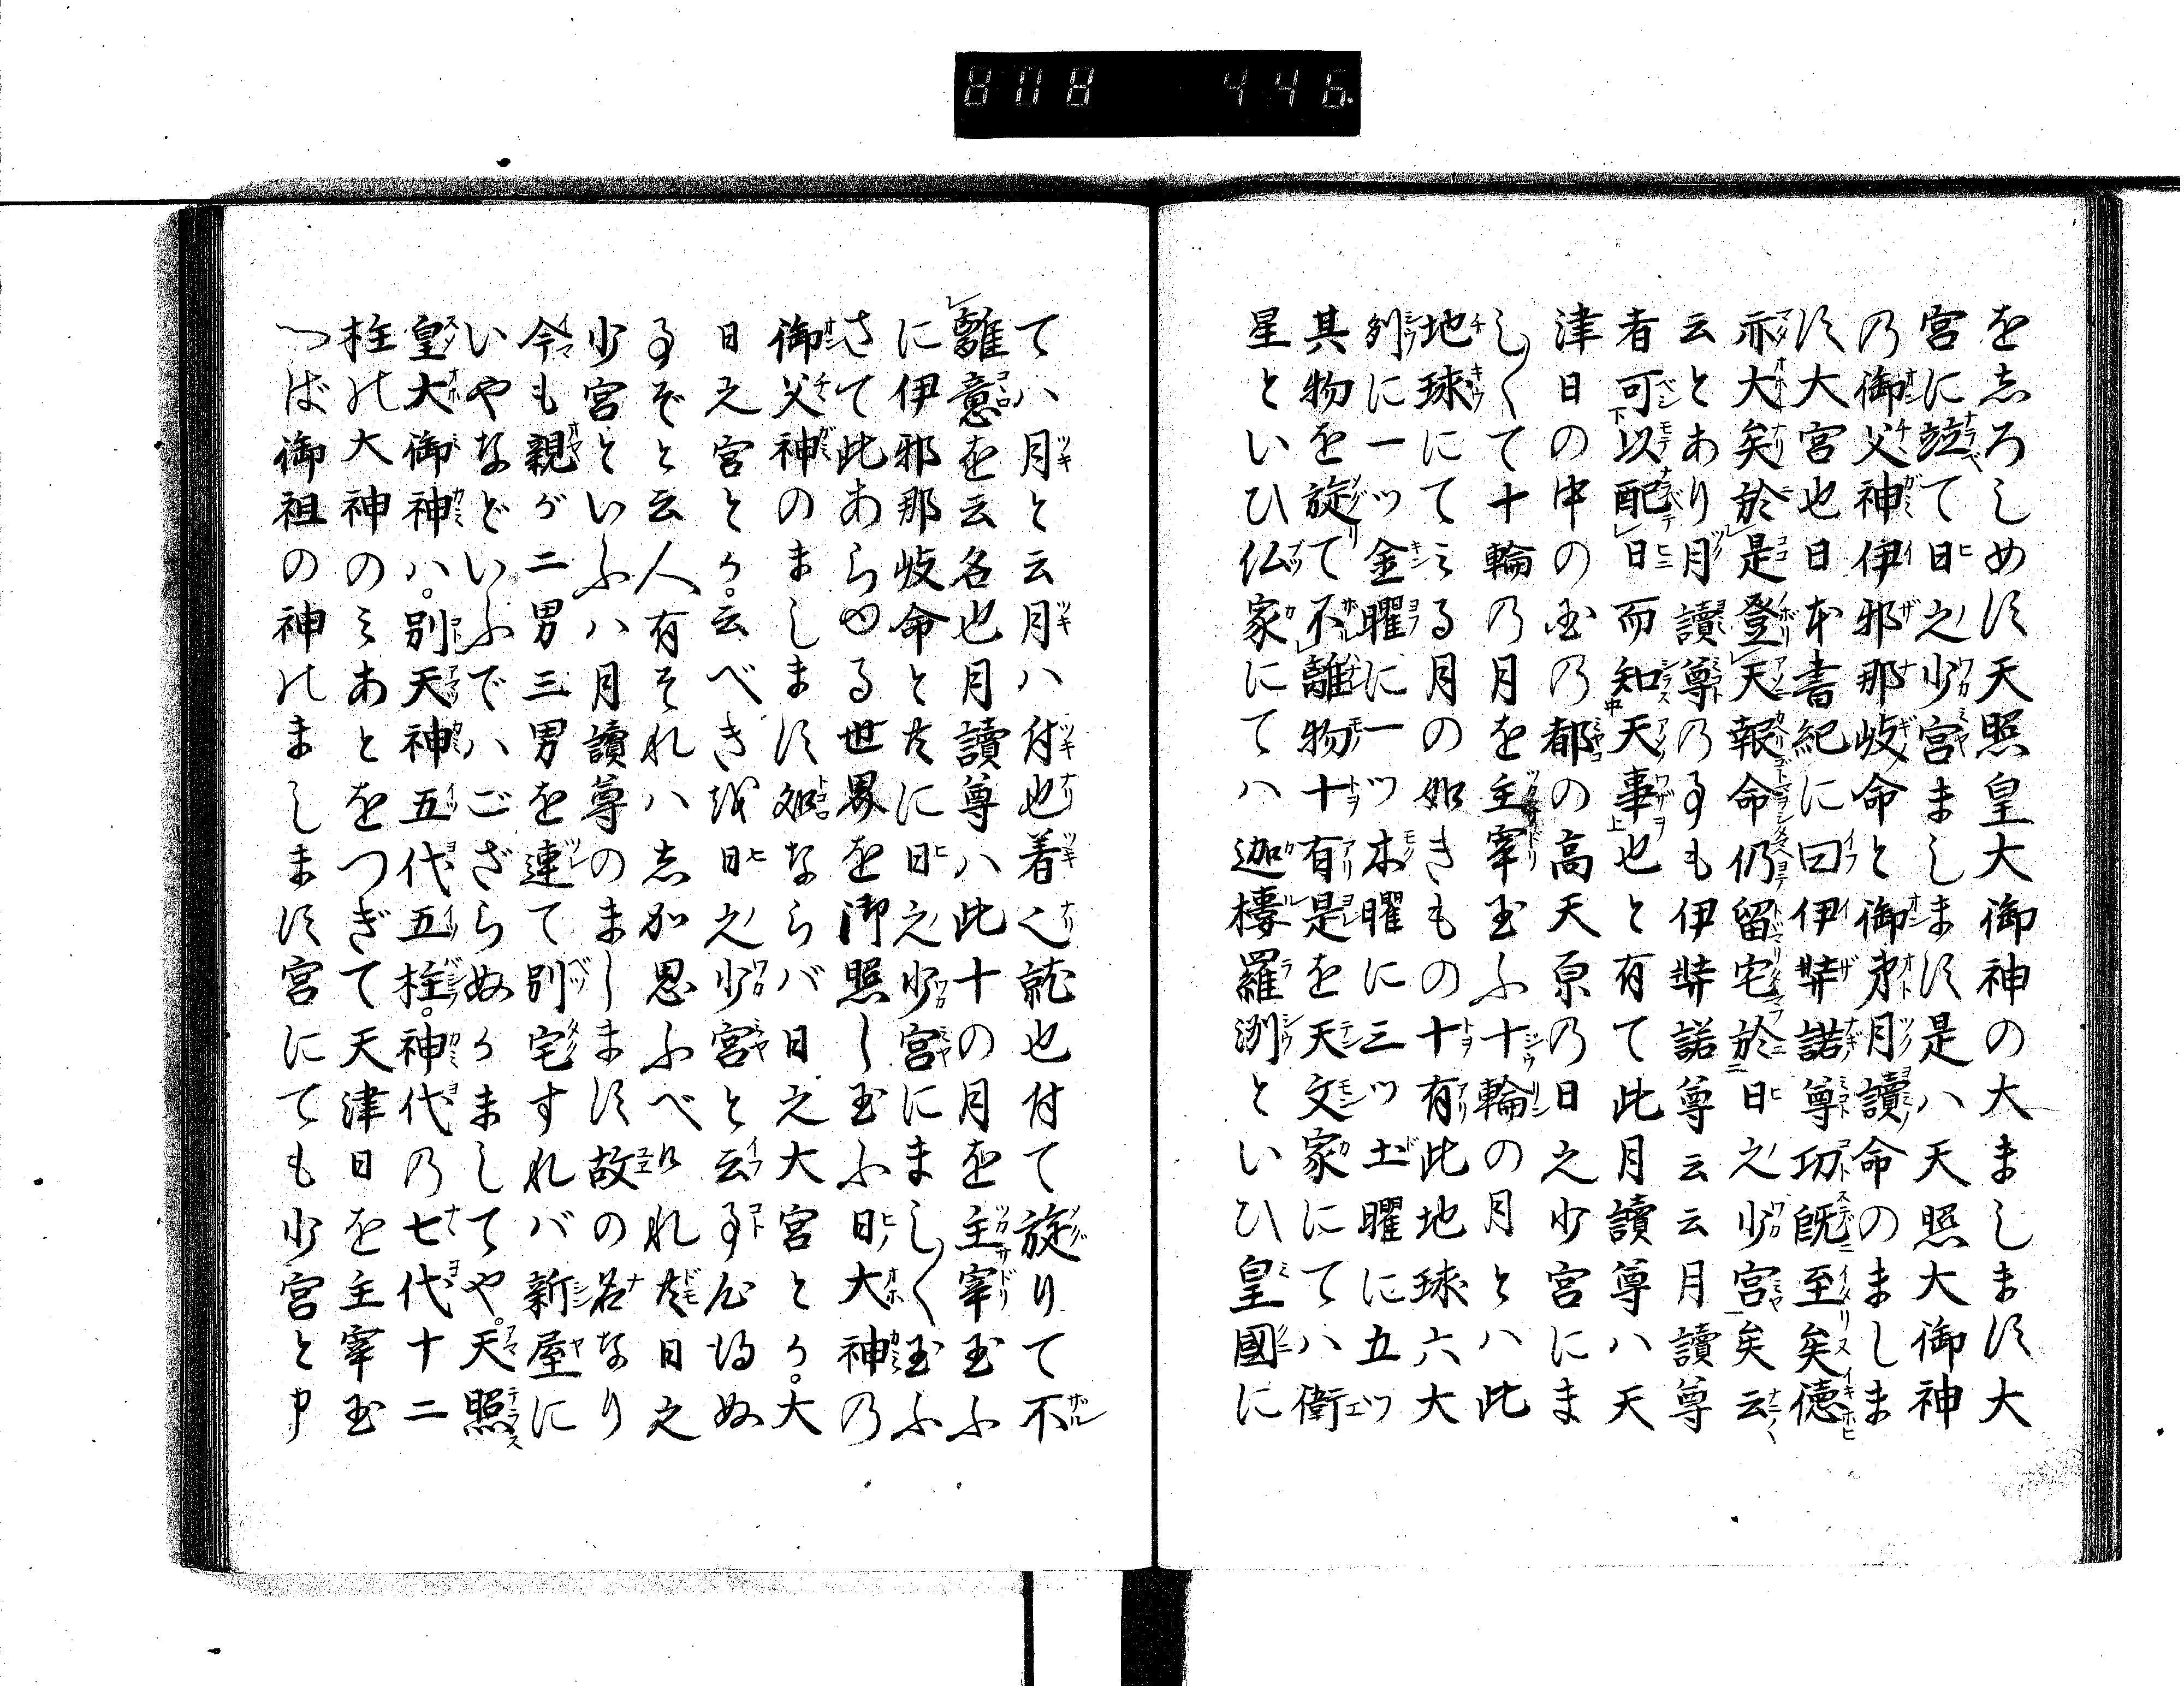 808 446
をしろしめす天照皇大御神の大まします大
宮に竝て日之少宮まします是ハ天照大御神
の御父神伊邪那岐命と御弟月讀命のましま
す大宮也日本書紀に曰伊弉諾尊功既至矣徳
亦大矣於是登天報命仍留宅於日之少宮矣云〻
云とあり月讀尊の事も伊弉諾尊云云月讀尊
者可以配日而知天事也と有て此月讀尊ハ天
津日の中の国の都の高天原の日之少宮にま
し〱て十輪の月を主宰玉ふ十輪の月とハ此
地球にてミる月の如きもの十有此地球六大
列に一ツ金曜に一ツ木曜に三ツ土曜に五ツ
其物を旋て不離物十有是を天文家にてハ衛
星といひ仏家にてハ迦樓羅洲といひ皇國に
てハ月と云月ハ付也着く就也付て旋りて不
離意を云名也月讀尊ハ此十の月を主宰玉ふ
に伊邪那岐命と共に日之少宮にまし〱玉ふ
さて此あらゆる世界を御照し玉ふ日大神の
御父神のまします処ならバ日之大宮とか。大
日之宮とか。云べき を日之少宮と云事心得ぬ
事ぞと云人有それハしか思ふべけれ共日之
少宮といふハ月讀尊のまします故の名なり
今も親が二男三男を連て別宅すれバ新屋に
いやなどいふでハござらぬかましてや。天照
皇大御神ハ。別天神五代五柱。神代の七代十二
柱の大神のミあとをつぎて天津日を主宰玉
つば御祖の神のまします宮にても少宮と申